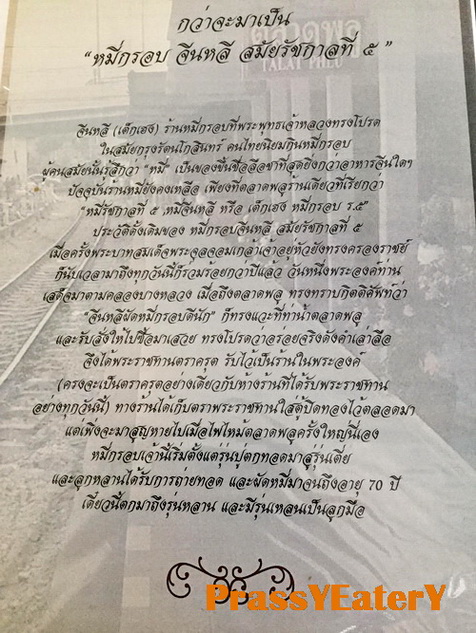 กว่าจะมาเป็น
“หมี่กรอบ จีนหลี สมัยรัชกาลที่ ๕ ”
ตลาดพลู
TALAT PHLU
จีนหลี (เต็กเฮง) ร้านหมี่กรอบที่พระพุทธเจ้าหลวงทรงโปรด
ในสมัยกรุงรัตนโกสินทร์ คนไทยนิยมกินหมี่กรอบ
ผู้คนสมัยนั้นรู้สึกว่า “หมี่” เป็นของขึ้นชื่อลือชาที่สุดยิ่งกว่าอาหารจีนใดๆ
ปัจจุบันร้านหมี่ยังคงเหลือ เพียงที่ตลาดพลูร้านเดียวที่เรียกว่า
“หมี่รัชกาลที่ ๕ ,หมี่จีนหลี หรือ เต็กเฮง หมี่กรอบ ร.๕”
ประวัติดั้งเดิมของ หมี่กรอบจีนหลี สมัยรัชกาลที่ ๕
เมื่อครั้งพระบาทสมเด็จพระจุลจอมเกล้าเจ้าอยู่หัวยังทรงครองราชย์
ก็นับเวลามาถึงทุกวันนี้ก็รวมร้อยกว่าปีแล้ว วันหนึ่งพระองค์ท่าน
เสด็จมาตามคลองบางหลวง เมื่อถึงตลาดพลู ทรงทราบกิตติศัพท์ว่า
“จีนหลีผัดหมี่กรอบดีนัก” ก็ทรงแวะที่ท่าน้ำตลาดพลู
และรับสั่งให้ไปซื้อมาเสวย ทรงโปรดว่าอร่อยจริงดังคำเล่าลือ
จึงได้พระราชทานตราครุต รับไว้เป็นร้านในพระองค์
(ครงจะเป็นตราครุตอย่างเดียวกับห้างร้านที่ได้รับพระราชทาน
อย่างทุกวันนี้) ทางร้านได้เก็บตราพระราชทานใส่ตู้ปิดทองไว้ตลอดมา
แต่เพิ่งจะมาสูญหายไปเมื่อไฟไหม้ตลาดพลูครั้งใหญ่นี้เอง
หมี่กรอบเจ้านี้เริ่มตั้งแต่รุ่นปู่ตกทอดมาสู่รุ่นเตี่ย
และลูกหลานได้รับการถ่ายทอด และผัดหมี่มาจนถึงอายุ 70 ปี
เดี๋ยวนี้ตกมาถึงรุ่นหลาน และมีรุ่นเหลนเป็นลูกมือ
PrassYEaterY